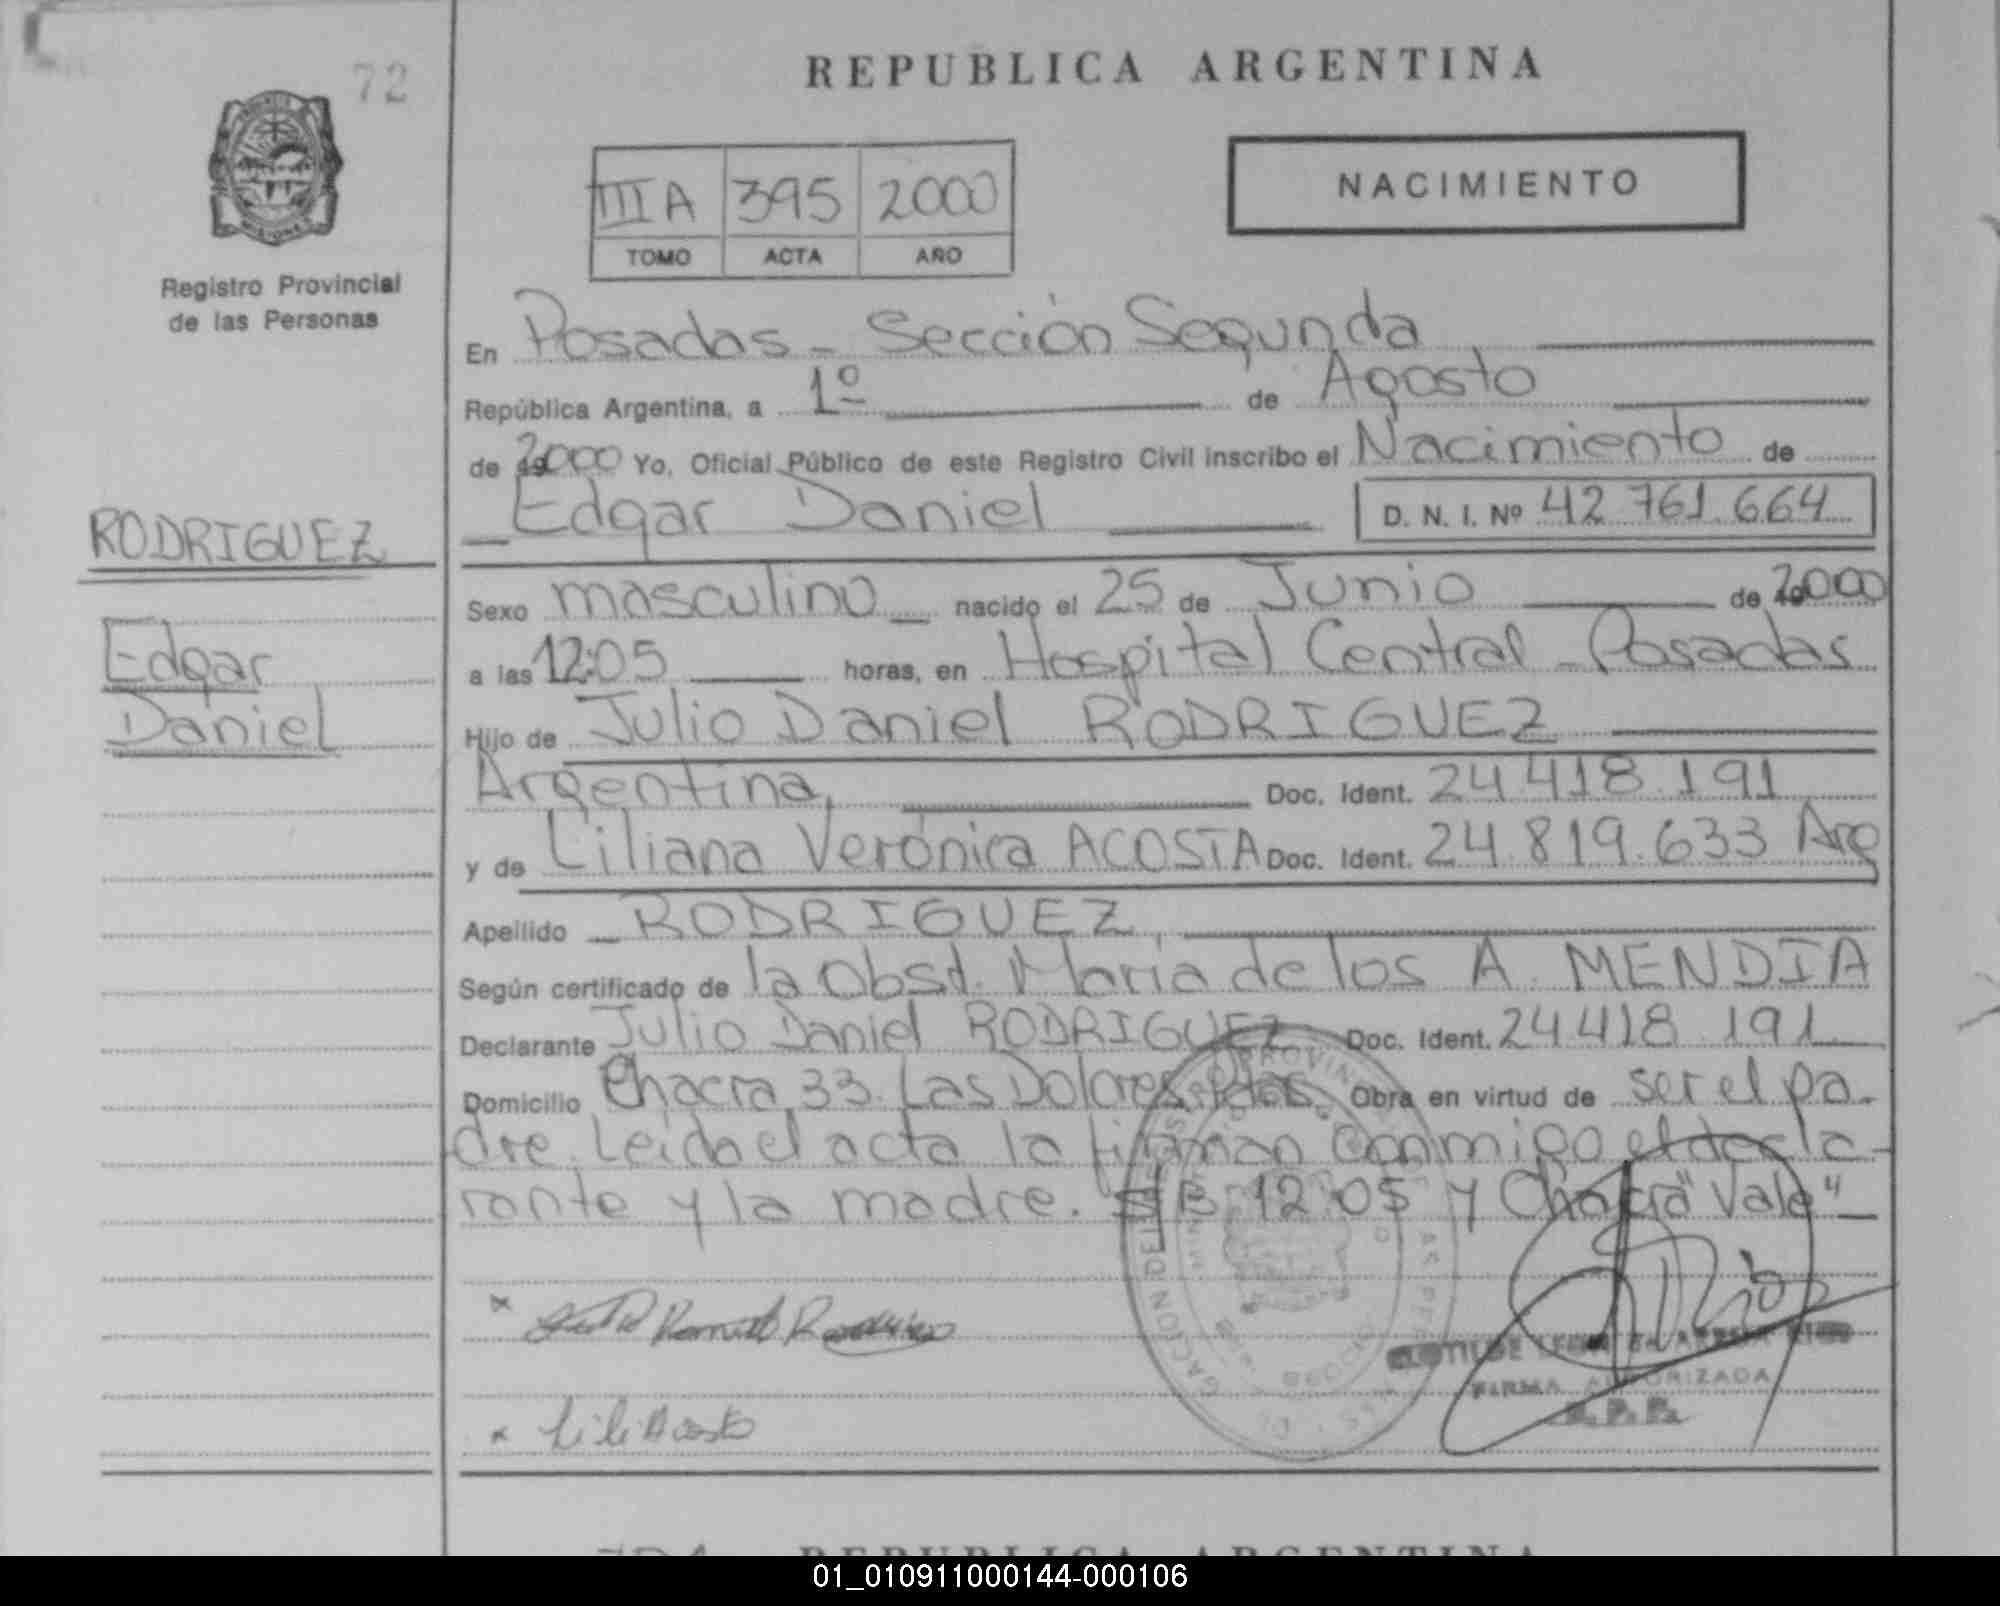 72
REPUBLICA ARGENTINA
NACIMIENTO
III A 395 2000
TOMO ACTA AÑO
Registro Provincial
de las Personas
En Posadas - Sección Segunda
República Argentina, a 1º de Agosto
de 2000 Yo, Oficial Público de este Registro Civil inscribo el Nacimiento de
Edgar Daniel D. N. I. Nº 42 761.664
RODRIGUEZ
Sexo masculino nacido el 25 de Junio de 2000
Edgar
a las 12:05 horas, en Hospital Central - Posadas
Daniel
Hijo de Julio Daniel RODRIGUEZ
Argentina, Doc. Ident. 24 418.191
y de Liliana Verónica ACOSTA Doc. Ident. 24.819.633 Arg
Apellido RODRIGUEZ,
Según certificado de la Obst. Maria de los A. MENDIA
Declarante Julio Daniel RODRIGUEZ Doc. Ident. 24 418.191
Domicilio Chacra 33. Las Dolores Pdas. Obra en virtud de ser el pa-
dre. Leida el acta la firman conmigo el decla-
rante y la madre. S/B 12:05 y Chacra "Vale"
Lili Acosta
FIRMA AUTORIZADA
R. P. P.
REPUBLICA ARGENTINA
01_010911000144-000106